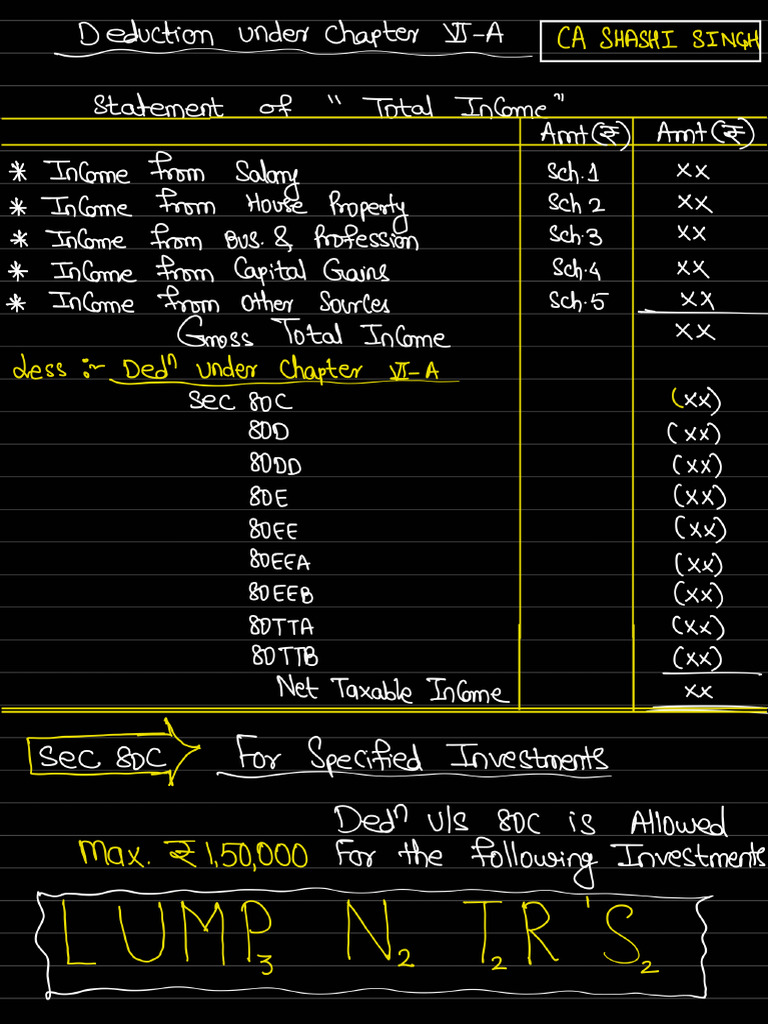 Deduction under Chapter VI-A
CA SHASHI SINGH
Statement of " Total InCome"
Amt (₹) Amt (₹)
* InCome from Salary Sch.1 xx
* InCome from House Property Sch 2 xx
* InCome from Bus. & Profession Sch.3 xx
* InCome from Capital Gains Sch.4 xx
* InCome from Other Sources Sch.5 xx
Gross Total InCome xx
Less :- Dedⁿ under Chapter VI-A
Sec 80C (xx)
80D (xx)
80DD (xx)
80E (xx)
80EE (xx)
80EEA (xx)
80EEB (xx)
80TTA (xx)
80TTB (xx)
Net Taxable InCome xx
Sec 80C For Specified Investments
Dedⁿ u/s 80C is Allowed
Max. ₹ 1,50,000 For the following Investments
LUMP₃ N₂ T₂R'S₂